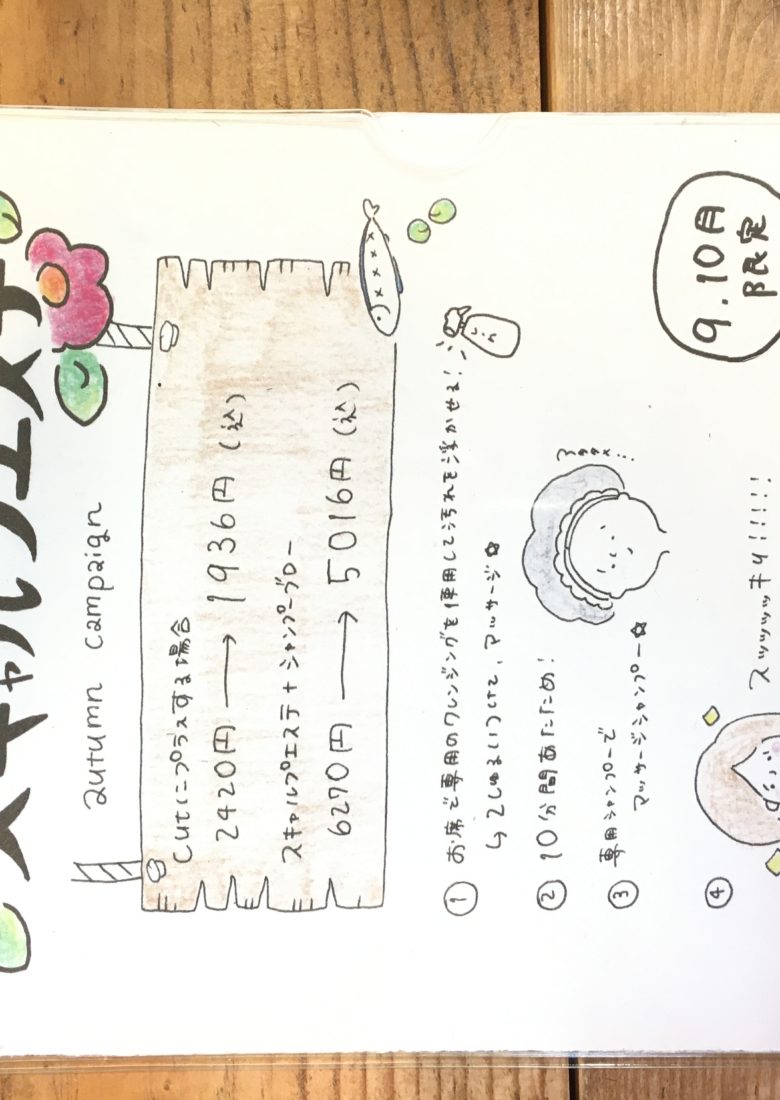 スキャルプエステ
autumn campaign
cutにプラスする場合
2420円 → 1936円 (込)
スキャルプエステ+シャンプーブロー
6270円 → 5016円 (込)
① お席で専用のクレンジングを使用して汚れを浮かせる!
マッサージ☆
② 10分間あたため!
③ 専用シャンプーで
マッサージシャンプー☆
④
スッッッッッキリ!!!!!
9.10月
限定